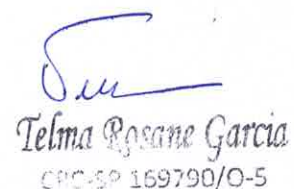 Telma Rosane Garcia
CRC-SP 169790/O-5